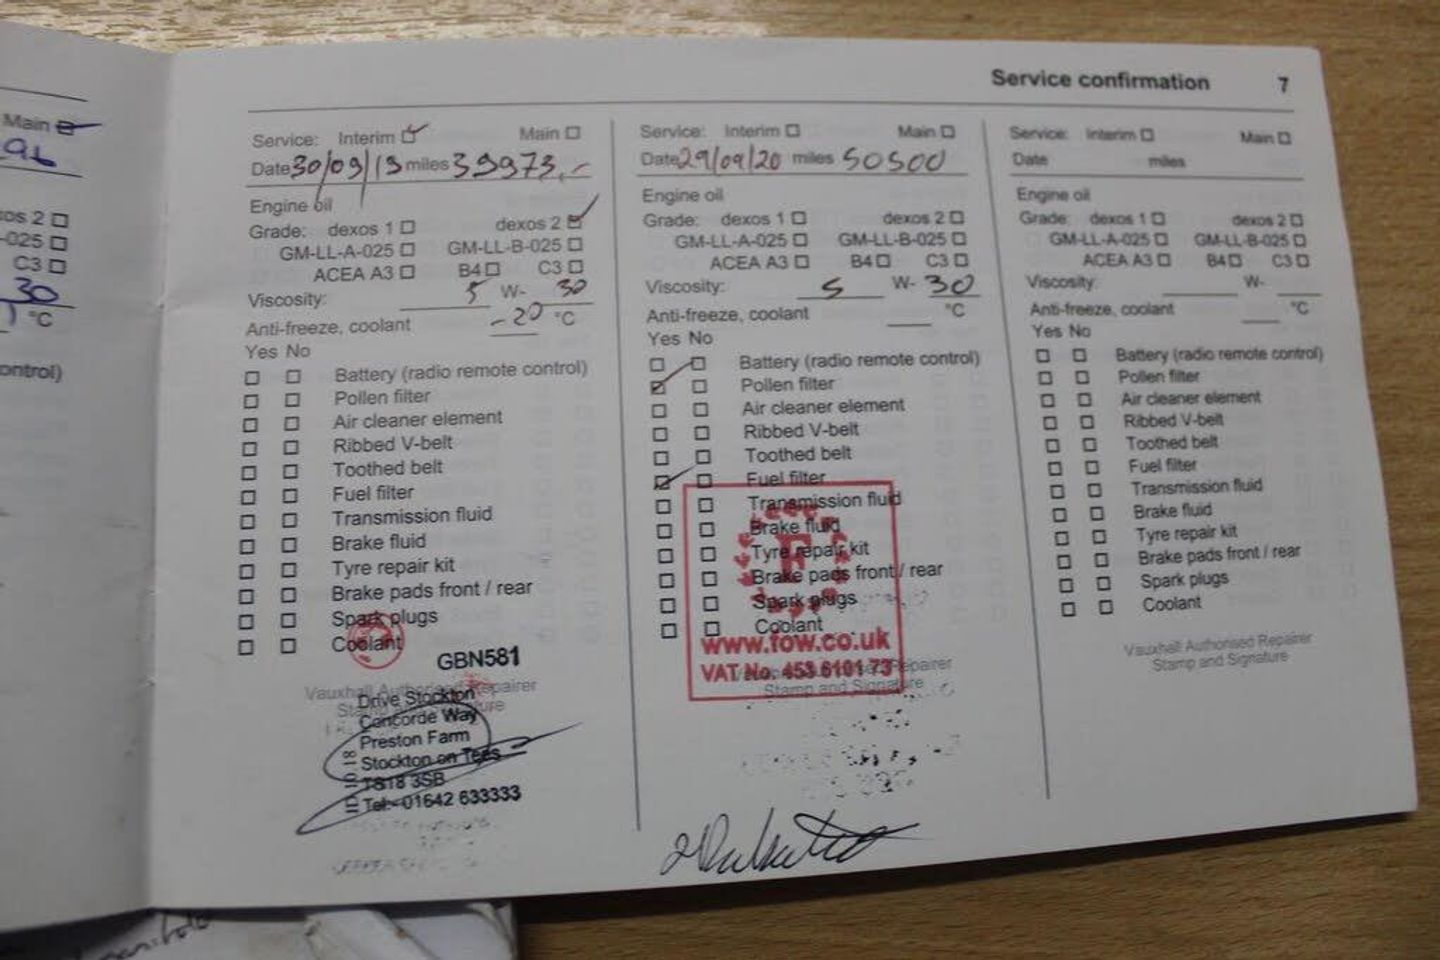 Service confirmation 7
Main
96
os 2
-025
C3
30
°C
ontrol)
Service: Interim Main
Date 30/09/19 miles 39973,-
Engine oil
Grade: dexos 1 dexos 2
GM-LL-A-025 GM-LL-B-025
ACEA A3 B4 C3
Viscosity: 5 W- 30
Anti-freeze, coolant -20 °C
Yes No
Battery (radio remote control)
Pollen filter
Air cleaner element
Ribbed V-belt
Toothed belt
Fuel filter
Transmission fluid
Brake fluid
Tyre repair kit
Brake pads front / rear
Spark plugs
Coolant
GBN581
Vauxhall Authorised Repairer
Stamp and Signature
Drive Stockton
Concorde Way
Preston Farm
Stockton on Tees
TS18 3SB
Tel:- 01642 633333
Service: Interim Main
Date 29/09/20 miles 50500
Engine oil
Grade: dexos 1 dexos 2
GM-LL-A-025 GM-LL-B-025
ACEA A3 B4 C3
Viscosity: 5 W- 30
Anti-freeze, coolant °C
Yes No
Battery (radio remote control)
Pollen filter
Air cleaner element
Ribbed V-belt
Toothed belt
Fuel filter
Transmission fluid
Brake fluid
Tyre repair kit
Brake pads front / rear
Spark plugs
Coolant
F
www.fow.co.uk
VAT No. 453 6101 73
Vauxhall Authorised Repairer
Stamp and Signature
Service: Interim Main
Date miles
Engine oil
Grade: dexos 1 dexos 2
GM-LL-A-025 GM-LL-B-025
ACEA A3 B4 C3
Viscosity: W-
Anti-freeze, coolant °C
Yes No
Battery (radio remote control)
Pollen filter
Air cleaner element
Ribbed V-belt
Toothed belt
Fuel filter
Transmission fluid
Brake fluid
Tyre repair kit
Brake pads front / rear
Spark plugs
Coolant
Vauxhall Authorised Repairer
Stamp and Signature